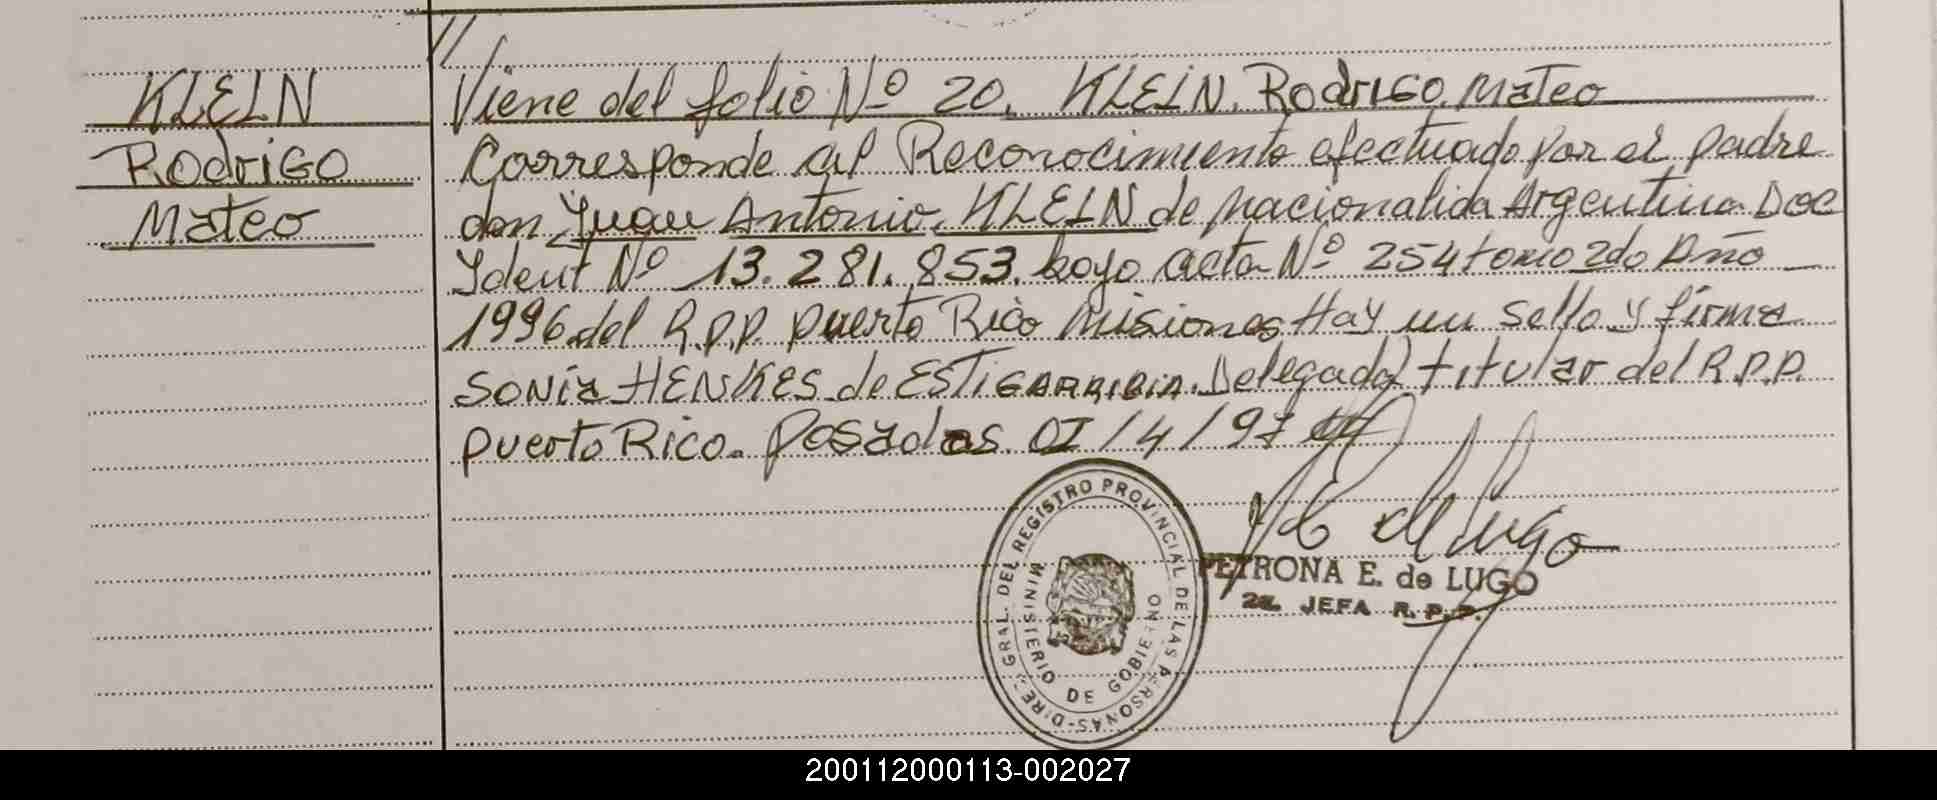 //
KLEIN
Rodrigo
Mateo
Viene del folio Nº 20. KLEIN. Rodrigo. Mateo
Corresponde al Reconocimiento efectuado por el padre
don Juan Antonio. KLEIN de nacionalida Argentina Doc
Ydent Nº 13.281.853. bajo acta Nº 254 tomo 2do Año
1996 del R.P.P. Puerto Rico Misiones Hay un sello y firma
SONia HENKES de ESTIGARRIBIA. Delegada titular del R.P.P.
Puerto Rico. Posadas. 01/4/97
DIREC. GRAL. DEL REGISTRO PROVINCIAL DE LAS PERSONAS-
MINISTERIO DE GOBIERNO
PETRONA E. de LUGO
2a. JEFA R.P.P.
200112000113-002027